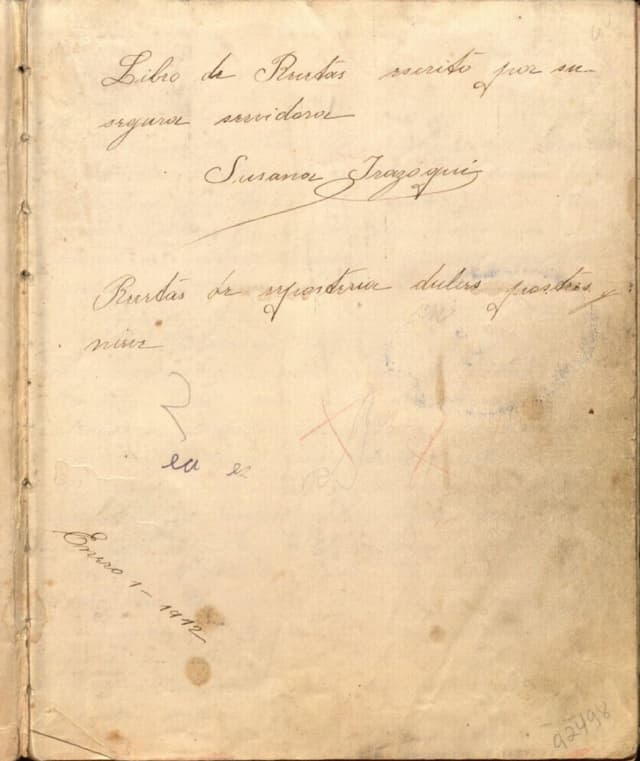 Libro de Resetas escrito por su
segura servidora
Susana Irazoqui
Resetas de reposteria dulces postres y
nieve
ea e
Enero 1 - 1912
92498